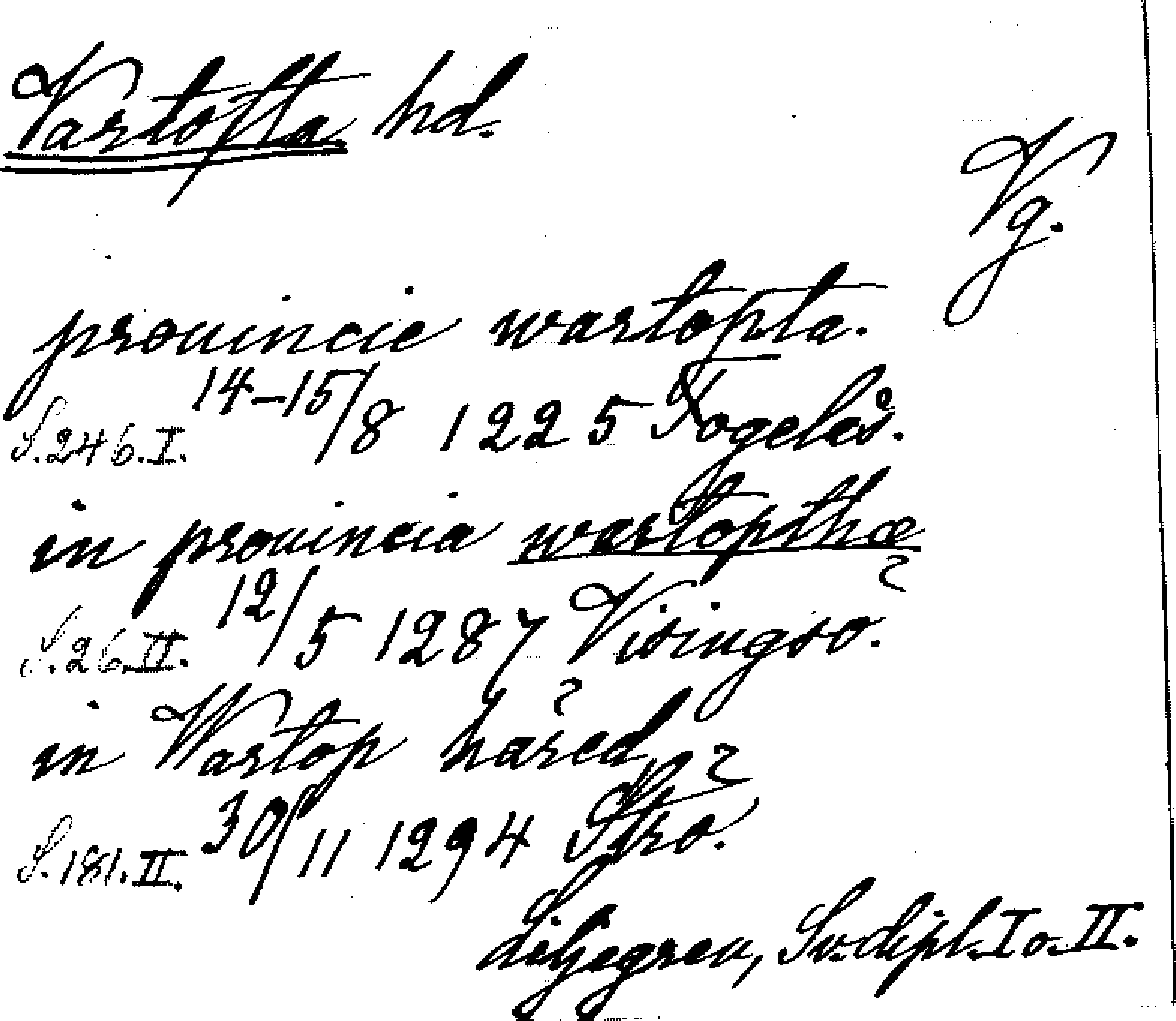 Vartofta hd.
Vg.
prouincie wartopta.
S.246.I. 14-15/8 1225 Fogelås.
in prouincia wartopthæ
S.26.II. 12/5 1287 Visingsö.
in Wartop håred
S.181.II. 30/11 1294 Strö.
Liljegren, Sv. dipl. I o. II.